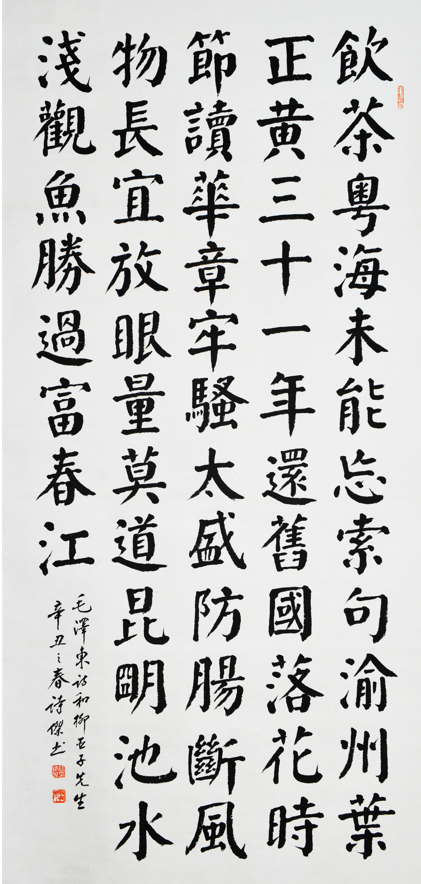 飲茶粤海未能忘索句渝州葉
正黄三十一年還舊國落花時
節讀華章牢騷太盛防腸斷風
物長宜放眼量莫道昆明池水
淺觀魚勝過富春江
毛澤東詩和柳亞子先生
辛丑之春詩傑书